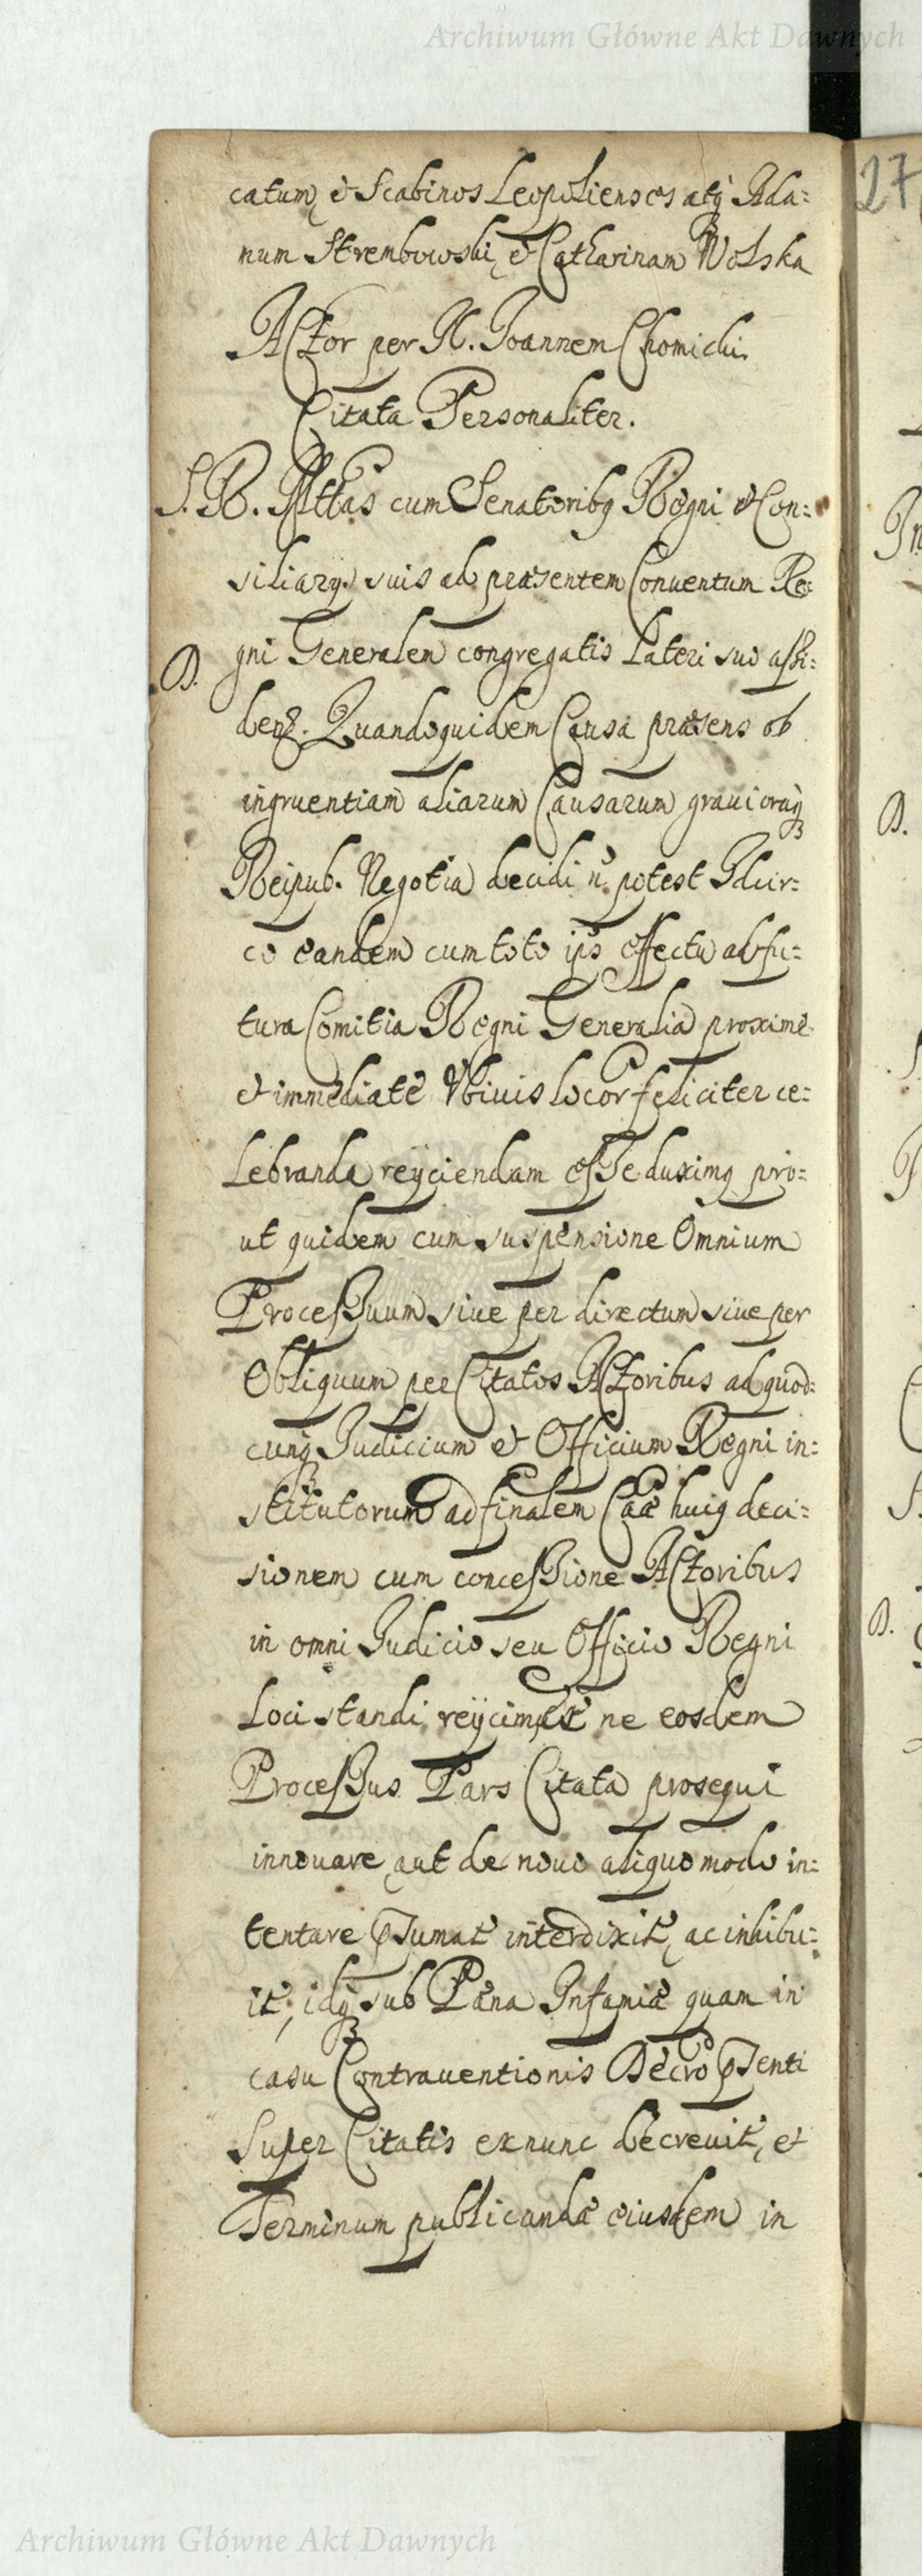 Archiwum Główne Akt Dawnych
catum, & Scabinos Leopolienses atq Ada=
mum Strembowski, & Catharinam Wolska
Actor per N. Joannem Chomicki.
Citata Personaliter.
S. R. Mttas cum Senatoribq Regni & Con=
siliarys suis ad præsentem Conventum Re=
D.
gni Generalem congregatis Lateri suo assi=
denz. Quandoquidem Causa præsens ob
ingruentiam aliarum Causarum graviorūq
Reipub. Negotia decidi n. potest Idcir=
co eandem cum toto ijs effectu ad fu=
tura Comitia Regni Generalia proxime
& immediatè Ubivis locor feliciter ce=
lebranda reijciendam esse duximq pro=
ut quidem cum suspensione Omnium
Processuum sive per directum sive per
Obliquum per Citatos Actoribus ad quod=
cunq Judicium & Officium Regni in=
stitutorum ad finalem Caæ huiq deci=
sionem cum concessione Actoribus
in omni Judicio seu Officio Regni
Loci standi reijcimq ne eosdem
Processus Pars Citata prosequi
innovare aut de novo aliquo modo in=
tentare pSumat interdixit, ac inhibu=
it, idq sub Pæna Infamiæ quam in
casu Contraventionis Decro pSenti
Super Citatis exnunc decrevit, et
Terminum publicandæ eiusdem in
27
Archiwum Główne Akt Dawnych